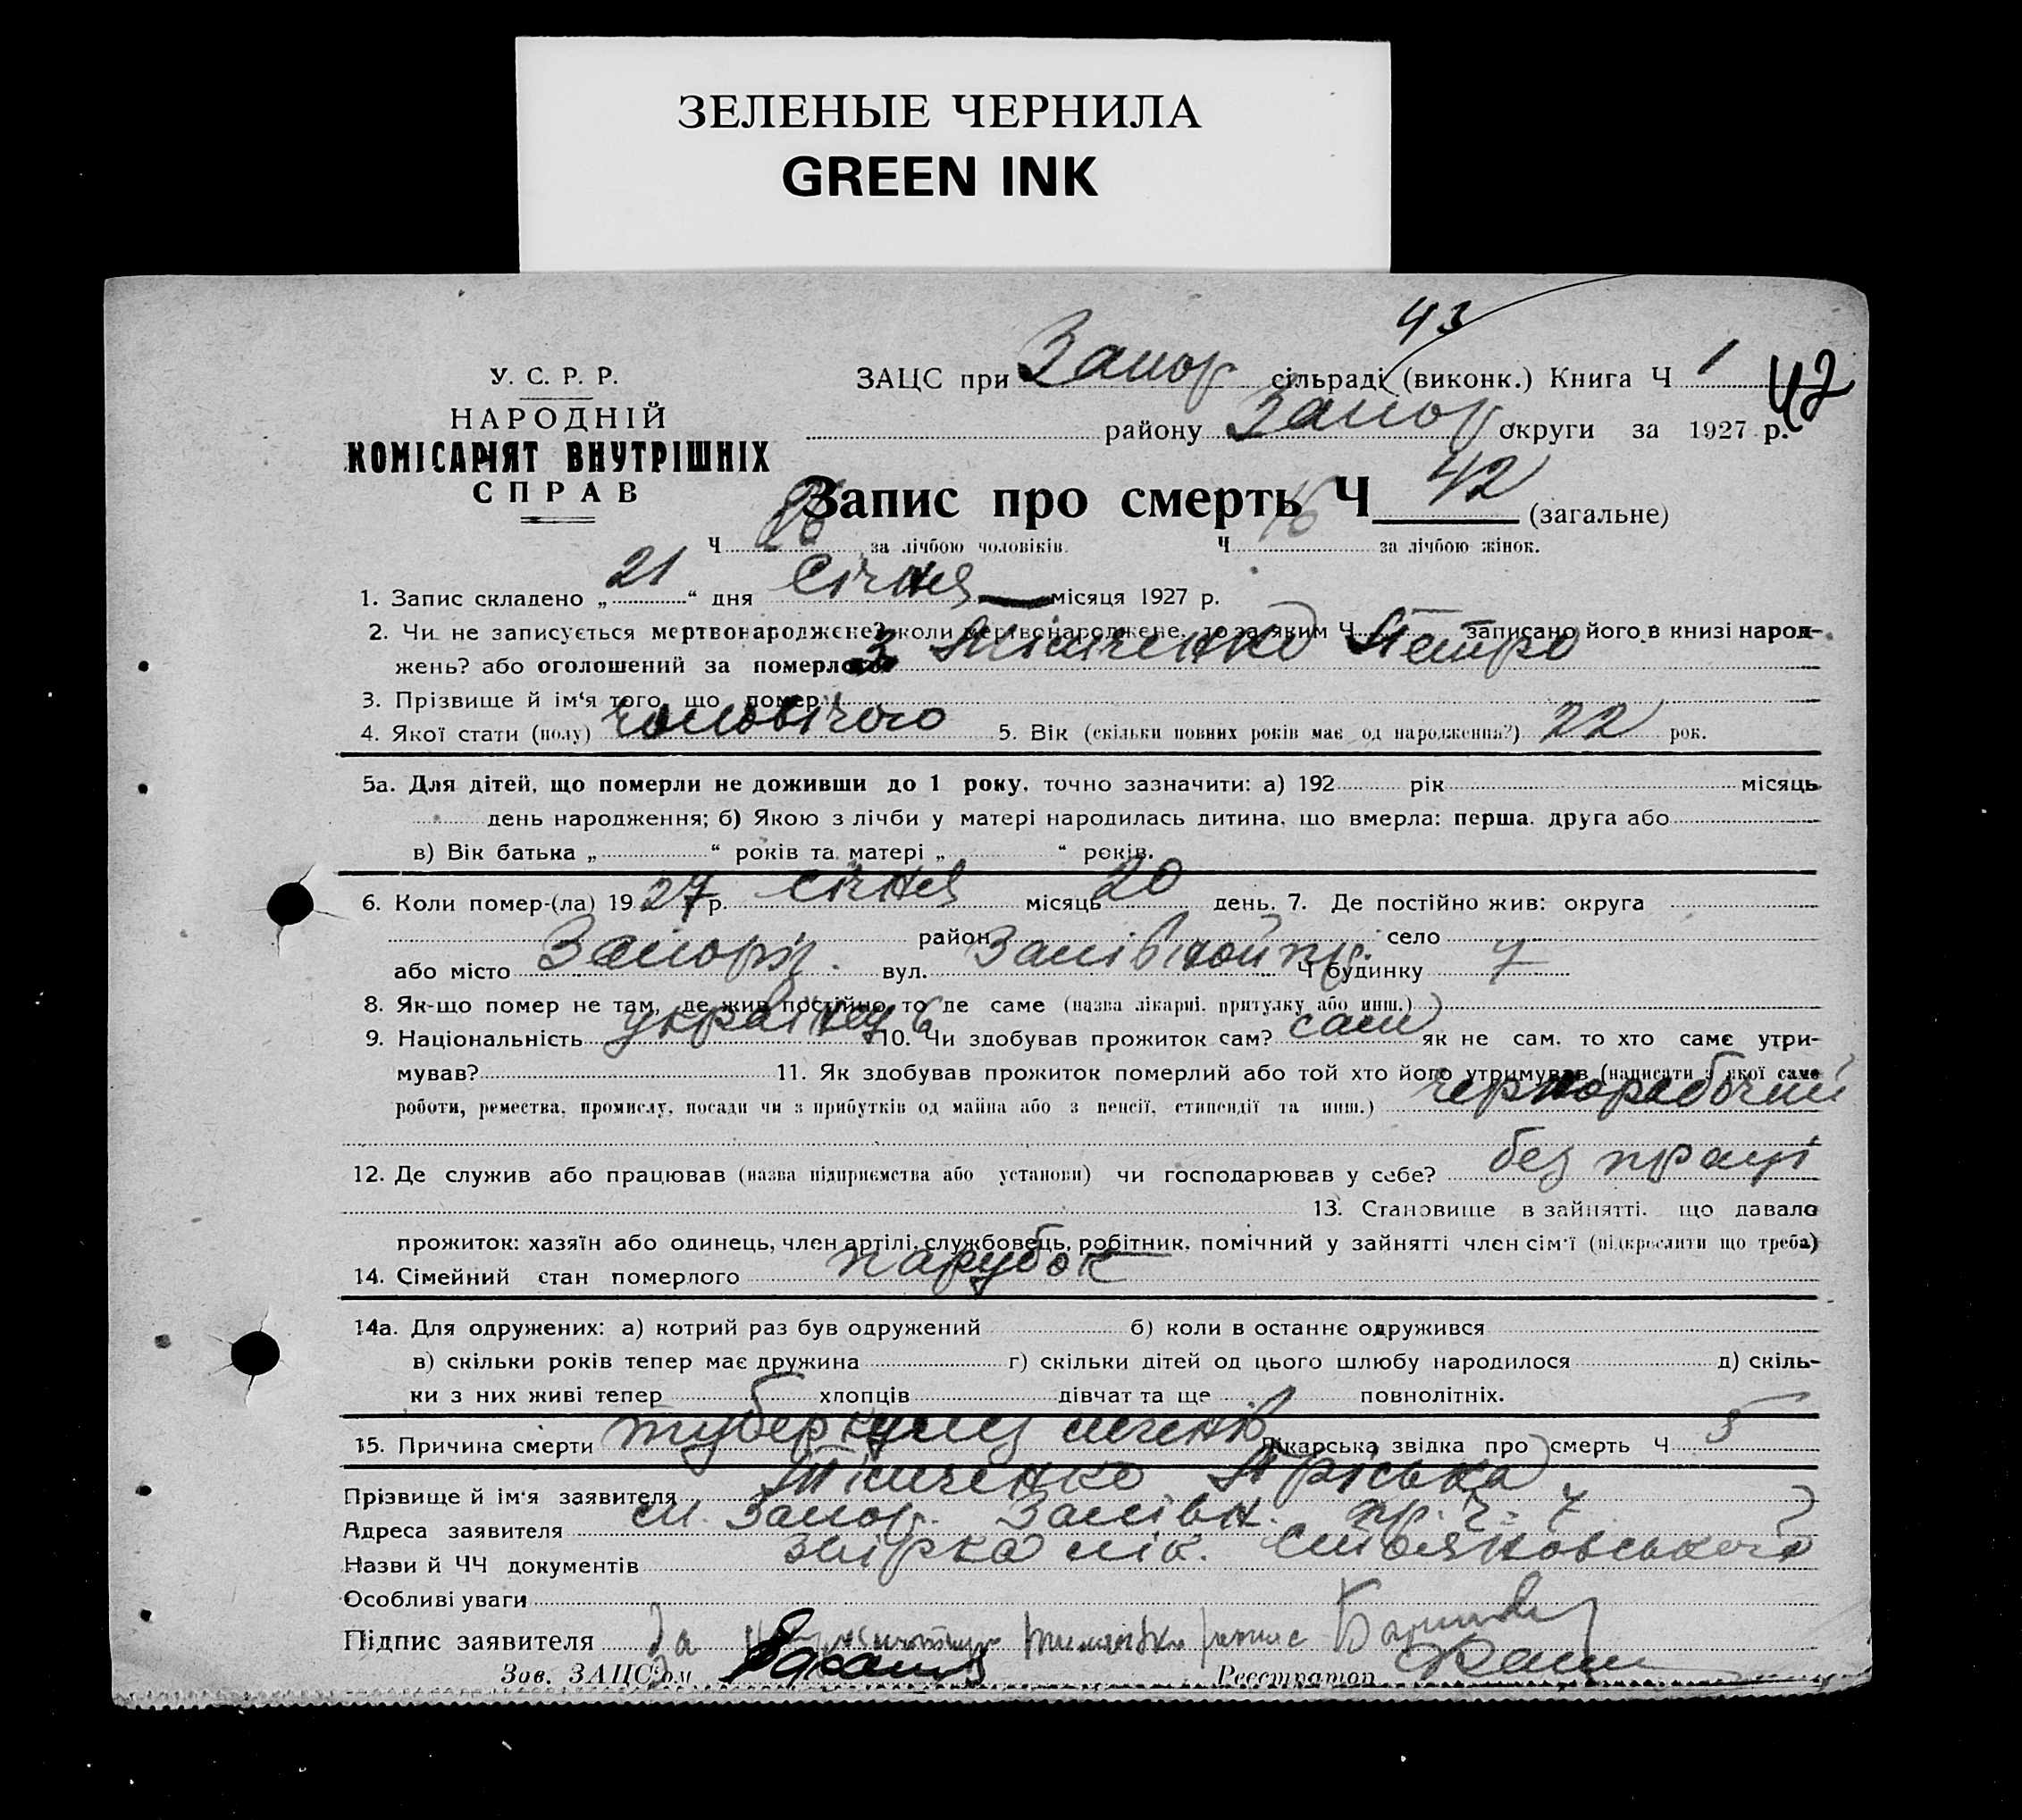 ЗЕЛЕНЫЕ ЧЕРНИЛА
GREEN INK
43
У. С. Р. Р.
НАРОДНІЙ
КОМІСАРІЯТ ВНУТРІШНІХ
СПРАВ
ЗАЦС при Запор сільраді (виконк.) Книга Ч 1
42
району Запор округи за 1927 р.
Запис про смерть Ч 42 (загальне)
Ч 26 за лічбою чоловіків. Ч 16 за лічбою жінок.
1. Запис складено „ 21 “ дня Січня місяця 1927 р.
2. Чи не записується мертвонароджене? коли мертвонароджене, то за яким Ч записано його в книзі народ-
жень? або оголошений за померлого
3 Тімченко Петро
3. Прізвище й ім‘я того, що помер
4. Якої стати (полу) чоловічого 5. Вік (скільки повних років має од народження?) 22 рок.
5а. Для дітей, що померли не доживши до 1 року, точно зазначити: а) 192 рік місяць
день народження; б) Якою з лічби у матері народилась дитина, що вмерла: перша, друга або
в) Вік батька „ “ років та матері „ “ років.
6. Коли помер-(ла) 19 27 р. Січня місяць 20 день. 7. Де постійно жив: округа
район село
або місто Запоріж. вул. Ч будинку 7
8. Як-що помер не там, де жив постійно, то де саме (назва лікарні, притулку або инш.)
9. Національність 10. Чи здобував прожиток сам? сам як не сам, то хто саме утри-
мував? 11. Як здобував прожиток померлий або той хто його утримував (написати з якої саме
роботи, ремества, промислу, посади чи з прибутків од майна або з пенсії, стипендії та инш.) чернорабочий
12. Де служив або працював (назва підприємства або установи) чи господарював у себе? без праці
13. Становище в зайнятті, що давало
прожиток: хазяїн або одинець, член артілі, службовець, робітник, помічний у зайнятті член сім‘ї (підкреслити що треба)
14. Сімейний стан померлого парубок
14а. Для одружених: а) котрий раз був одружений б) коли в останнє одружився
в) скільки років тепер має дружина г) скільки дітей од цього шлюбу народилося д) скіль-
ки з них живі тепер хлопців дівчат та ще повнолітніх.
15. Причина смерти туберкульоз легенів Лікарська звідка про смерть Ч 5
Прізвище й ім‘я заявителя Тімченко Пріська
Адреса заявителя м. Запор. пр. ч. 7
Назви й ЧЧ документів лік.
Особливі уваги
Підпис заявителя За
Зов. ЗАЦС‘ом Реєстратор